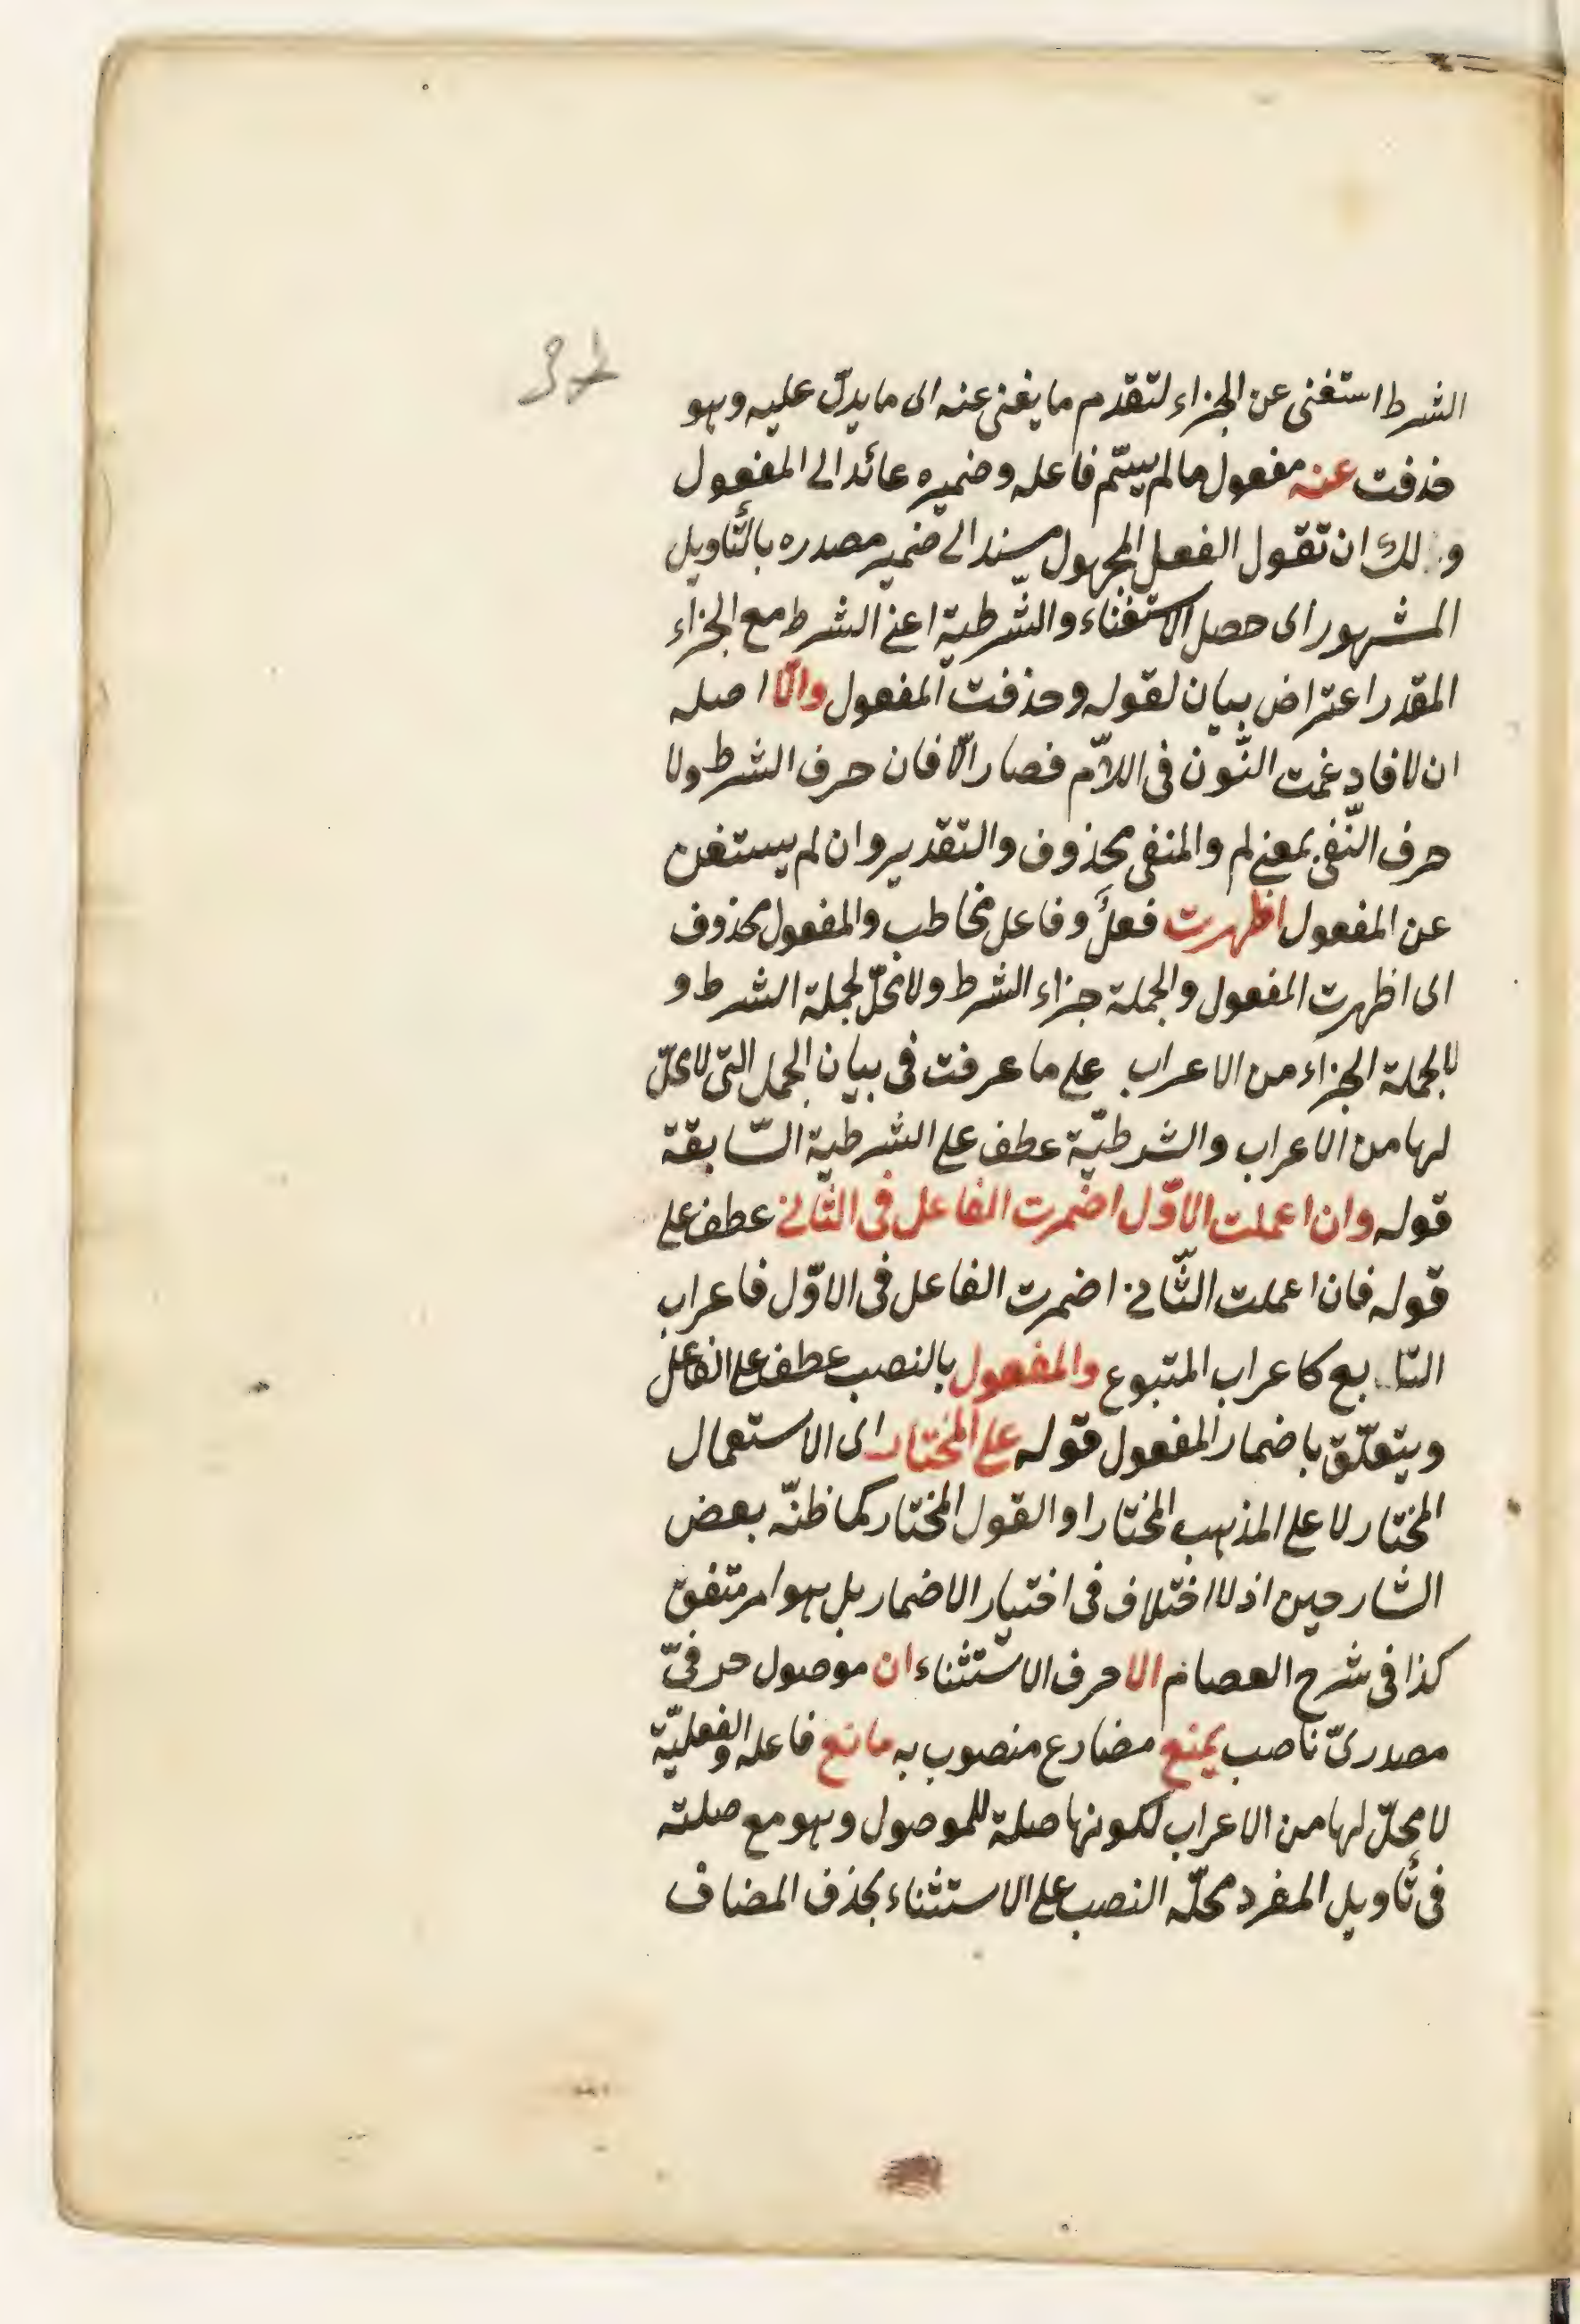 الشرط استغنى عن الجزاء لتقدم ما يغنى عنه اى ما يدلّ عليه وهو
حذفت عنه مفعول ما لم يسمّ فاعله وضميره عائد الى المفعول
ولك ان تقول الفعل المجهول مسند الى ضمير مصدره بالتّأويل
المشهور اى حصل الاستغناء والشرطية اعنى الشرط مع الجزاء
المقدر اعتراض بيان لقوله وحذفت المفعول والّا اصله
ان لا فادغمت النّون فى اللّام فصار الّا فان حرف الشرط ولا
حرف النّفى بمعنى لم والمنفى محذوف والتقدير وان لم يستغن
عن المفعول اظهرت فعل وفاعل مخاطب والمفعول محذوف
اى اظهرت المفعول والجملة جزاء الشرط ولا محلّ لجملة الشرط و
لا لجملة الجزاء من الاعراب على ما عرفت فى بيان الجمل التى لا محلّ
لها من الاعراب والشرطيّة عطف على الشرطية السّابقة
قوله وان اعملت الاوّل اضمرت الفاعل فى الثّانى عطف على
قوله فان اعملت الثّانى اضمرت الفاعل فى الاوّل فاعراب
التّابع كاعراب المتبوع والمفعول بالنصب عطف على الفاعل
ويتعلّق باضمار المفعول قوله على المختار اى الاستعمال
المختار لا على المذهب المختار او القول المختار كما ظنّه بعض
الشّارحين اذ لا اختلاف فى اختيار الاضمار بل هو امر متفق
كذا فى شرح العصام الا حرف الاستثناء ان موصول حرفىّ
مصدرىّ ناصب يمنع مضارع منصوب به مانع فاعله والفعليّة
لا محلّ لها من الاعراب لكونها صلة للموصول وهو مع صلته
فى تأويل المفرد محلّه النصب على الاستثناء بحذف المضاف